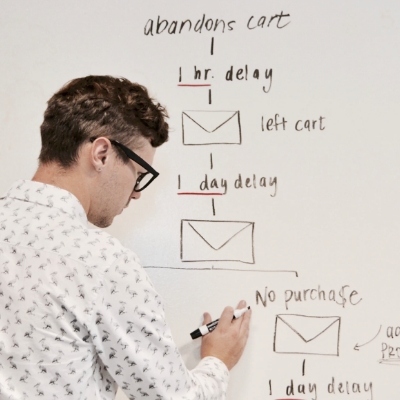 abandons cart
1 hr. delay
left cart
1 day delay
No purchase
1 day delay